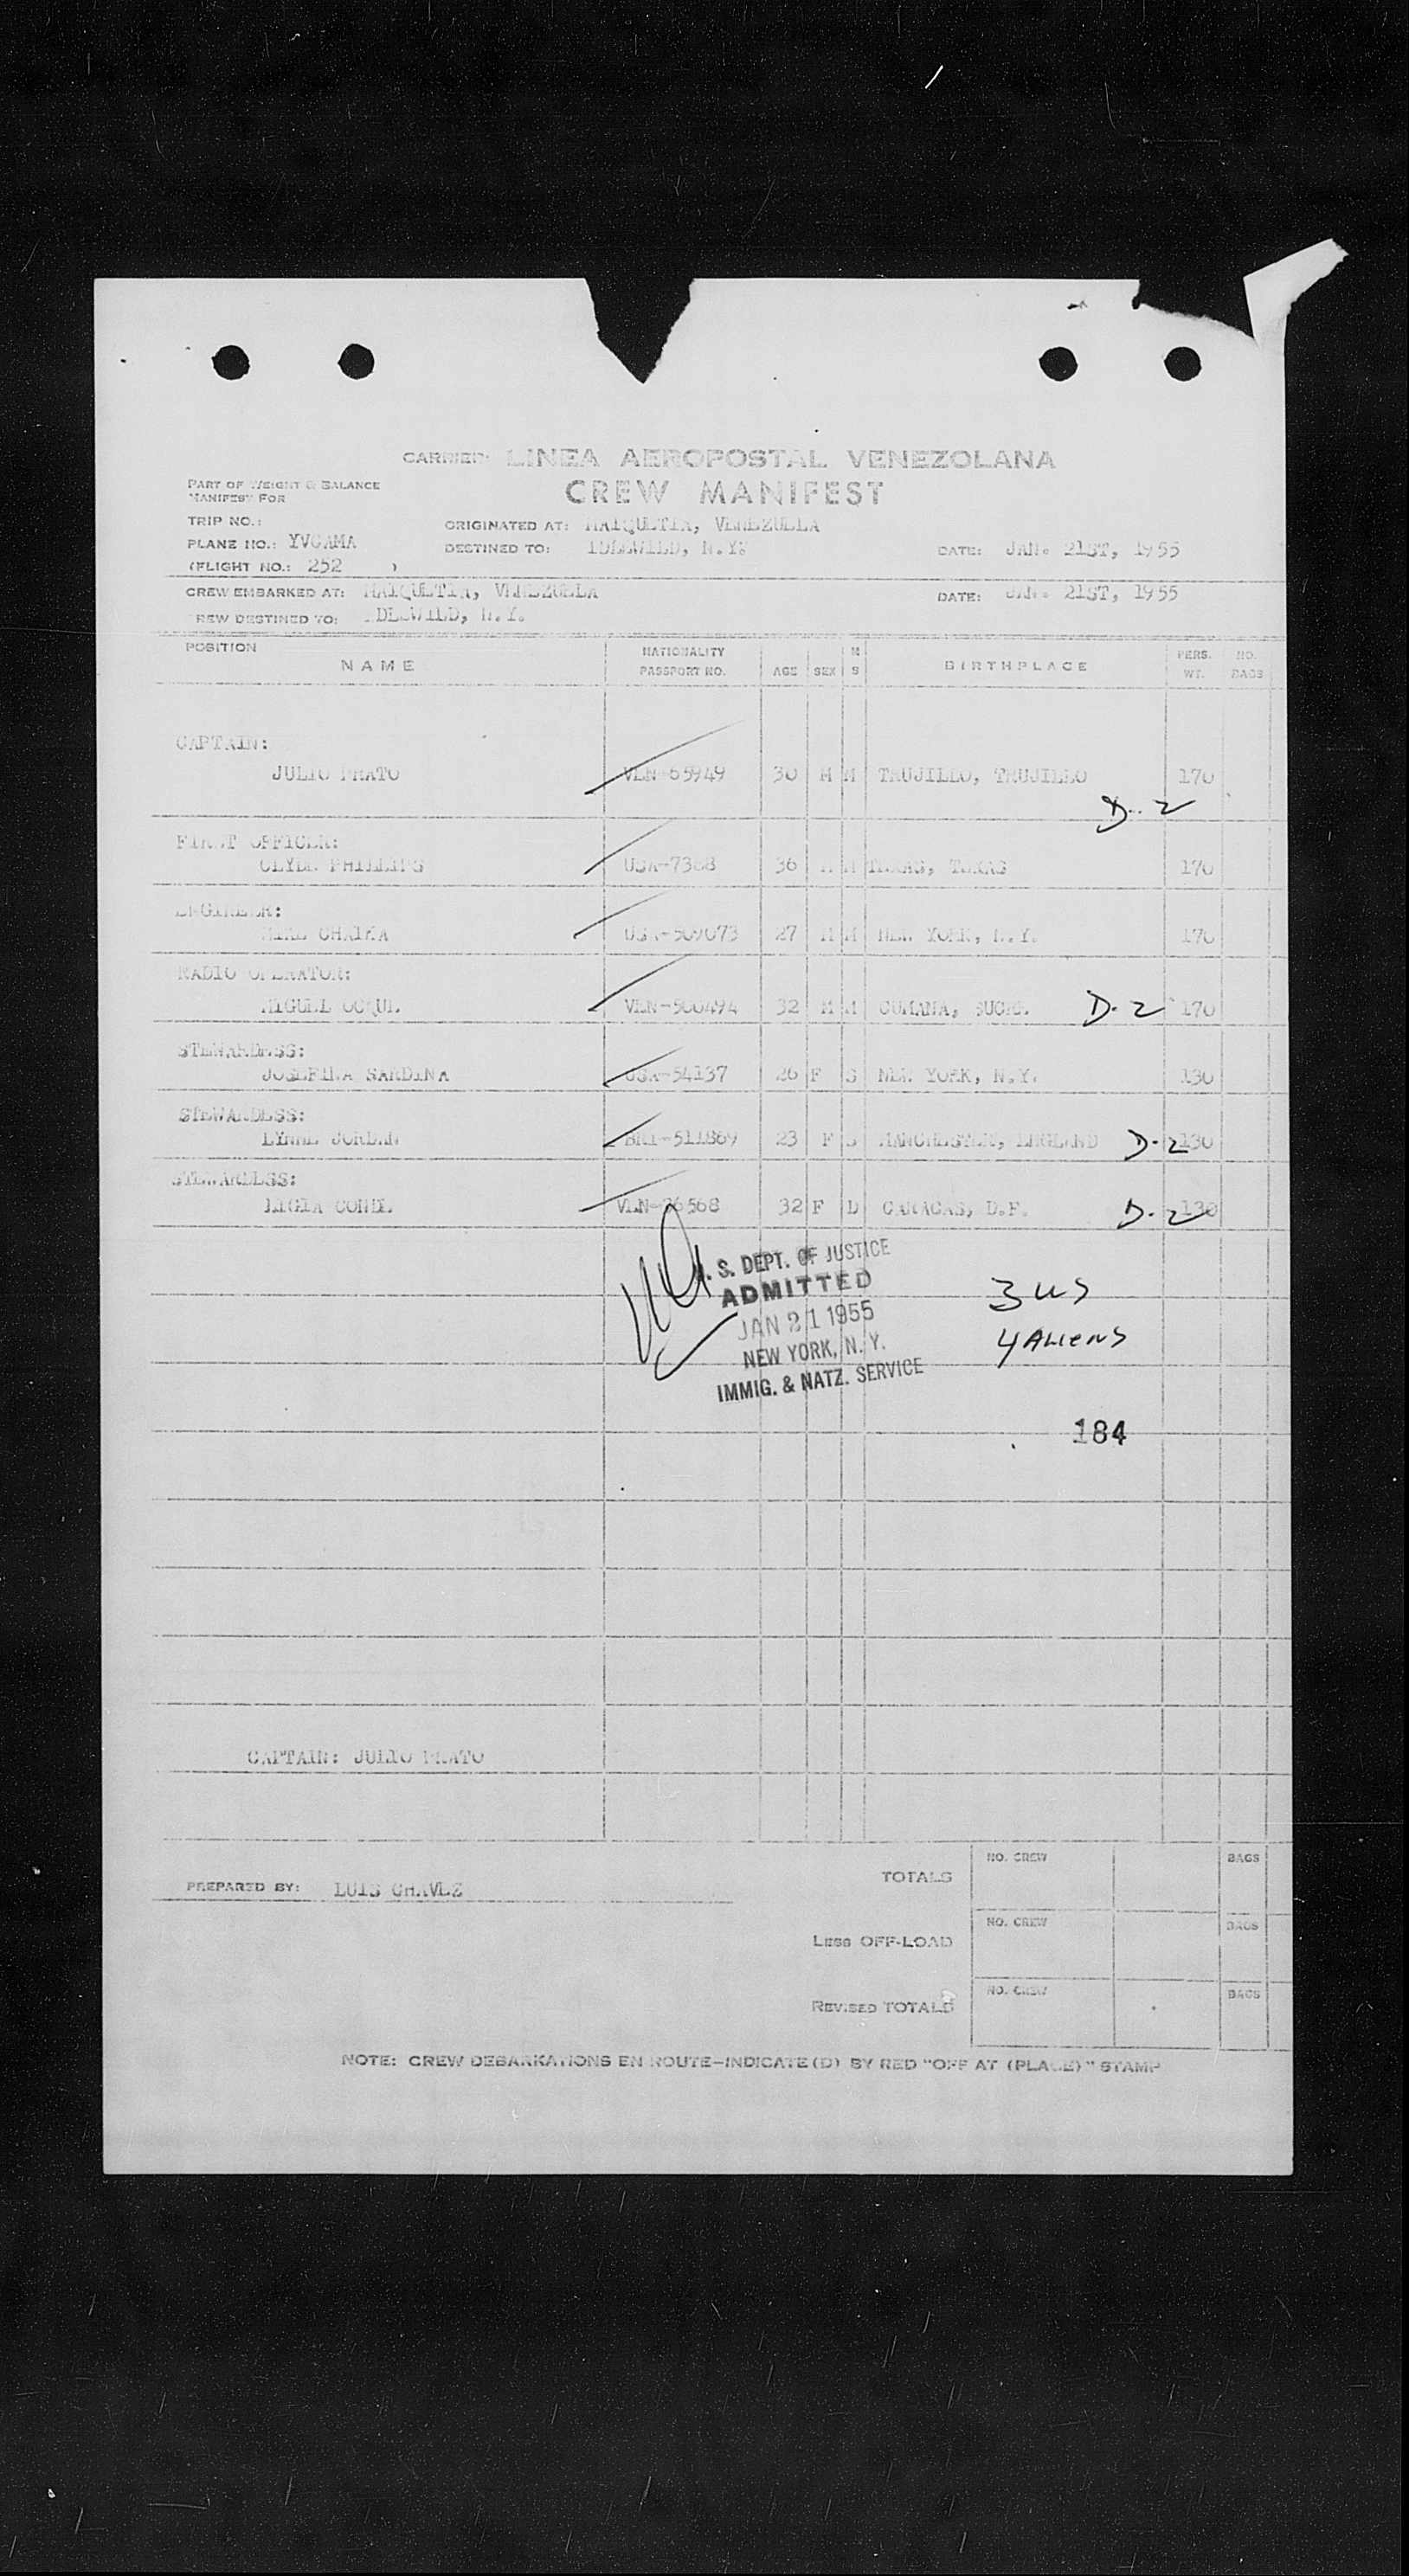 CARRIER: LINEA AEROPOSTAL VENEZOLANA
PART OF WEIGHT & BALANCE
MANIFEST FOR
CREW MANIFEST
TRIP NO.:
ORIGINATED AT: MAIQUETIA, VENEZUELA
PLANE NO.: YVCAMA
DESTINED TO: IDLEWILD, N.Y.
DATE: JAN. 21ST, 1955
(FLIGHT NO.: 252 )
CREW EMBARKED AT: MAIQUETIA, VENEZUELA
DATE: JAN. 21ST, 1955
CREW DESTINED TO: IDLEWILD, N.Y.
POSITION
NAME
NATIONALITY
PASSPORT NO.
AGE SEX M S BIRTHPLACE PERS. WT. NO. BAGS
CAPTAIN:
JULIO PRATO VEN-65949 30 M M TRUJILLO, TRUJILLO 170
D-2
FIRST OFFICER:
CLYDE PHILLIPS USA-7388 36 M M TEXAS, TEXAS 170
ENGINEER:
MIKE CHAIKA USA-509073 27 M M NEW YORK, N.Y. 170
RADIO OPERATOR:
MIGUEL VEN-500494 32 M M CUMANA, SUCRE. D-2 170
STEWARDESS:
JOSEFINA SARDINA USA-54137 26 F S NEW YORK, N.Y. 130
STEWARDESS:
LYNNE JORDAN BRI-511869 23 F S MANCHESTER, ENGLAND D-2 130
STEWARDESS:
LIGIA CONDE VEN-26568 32 F D CARACAS, D.F. D-2 130
U. S. DEPT. OF JUSTICE
ADMITTED
JAN 21 1955
NEW YORK, N. Y.
IMMIG. & NATZ. SERVICE
3 US
4 ALIENS
184
CAPTAIN: JULIO PRATO
PREPARED BY: LUIS CHAVEZ
TOTALS NO. CREW BAGS
LESS OFF-LOAD NO. CREW BAGS
REVISED TOTALS NO. CREW BAGS
NOTE: CREW DEBARKATIONS EN ROUTE-INDICATE (D) BY RED "OFF AT (PLACE)" STAMP